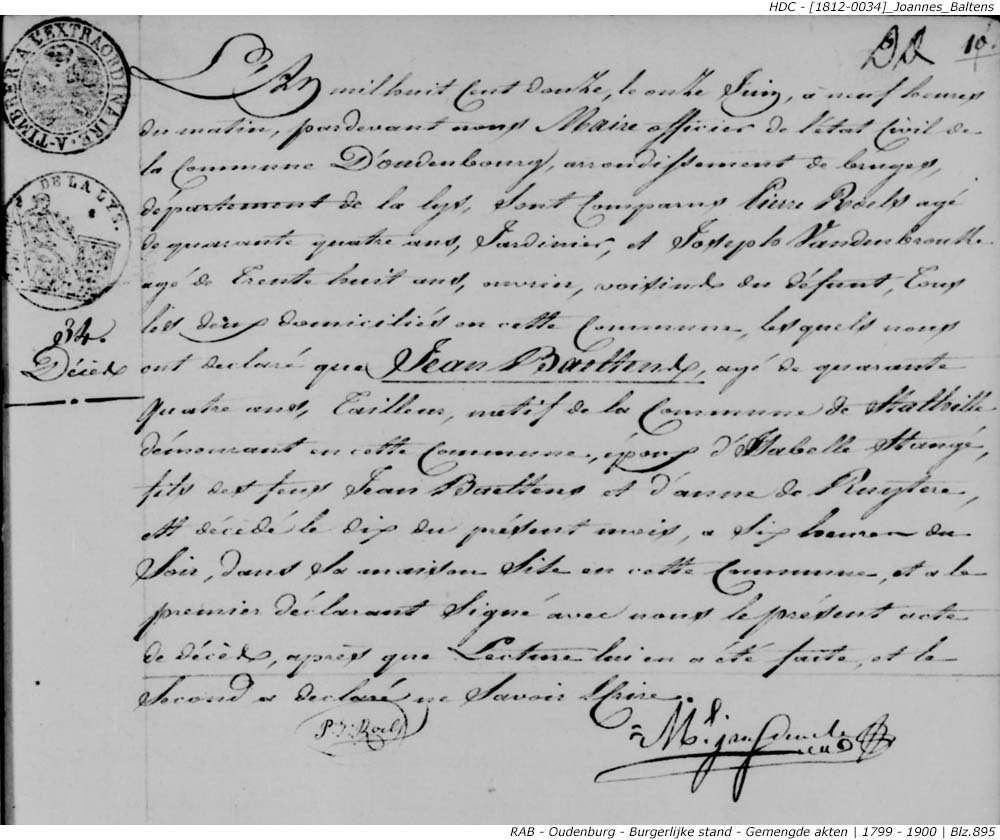 HDC - [1812-0034]_Joannes_Baltens
TIMBRE-A L'EXTRAORDINAIRE-A
10
L'An mil huit Cent douze, le onze Juin, à neuf heures
du matin, pardevant nous Maire officier de l'état Civil de
la Commune D'oudenbourg, arrondissement de bruges,
département de la lys, sont Comparus Pierre Roels agé
DE LA LYS.
de quarante quatre ans, Jardinier, et Joseph Vandenbroucke
agé de Trente huit ans, ouvrier, voisins du défunt, Tous
les deux domiciliés en cette Commune, lesquels nous
34.
Décès
ont declaré que Jean Baeltens, agé de quarante
quatre ans, Tailleur, natif de la Commune de Stalhille
démeurant en cette Commune, époux d'Isabelle Stangé,
fils des feus Jean Baeltens et d'anne de Ruytere,
est décédé le dix du présent mois, a six heures du
Soir, dans sa maison Site en cette Commune, et a le
premier déclarant Signé avec nous le présent acte
de décès, après que Lecture lui en a été faite, et le
Second a declaré ne Savoir Ecrire.
P: Roels
RAB - Oudenburg - Burgerlijke stand - Gemengde akten | 1799 - 1900 | Blz.895